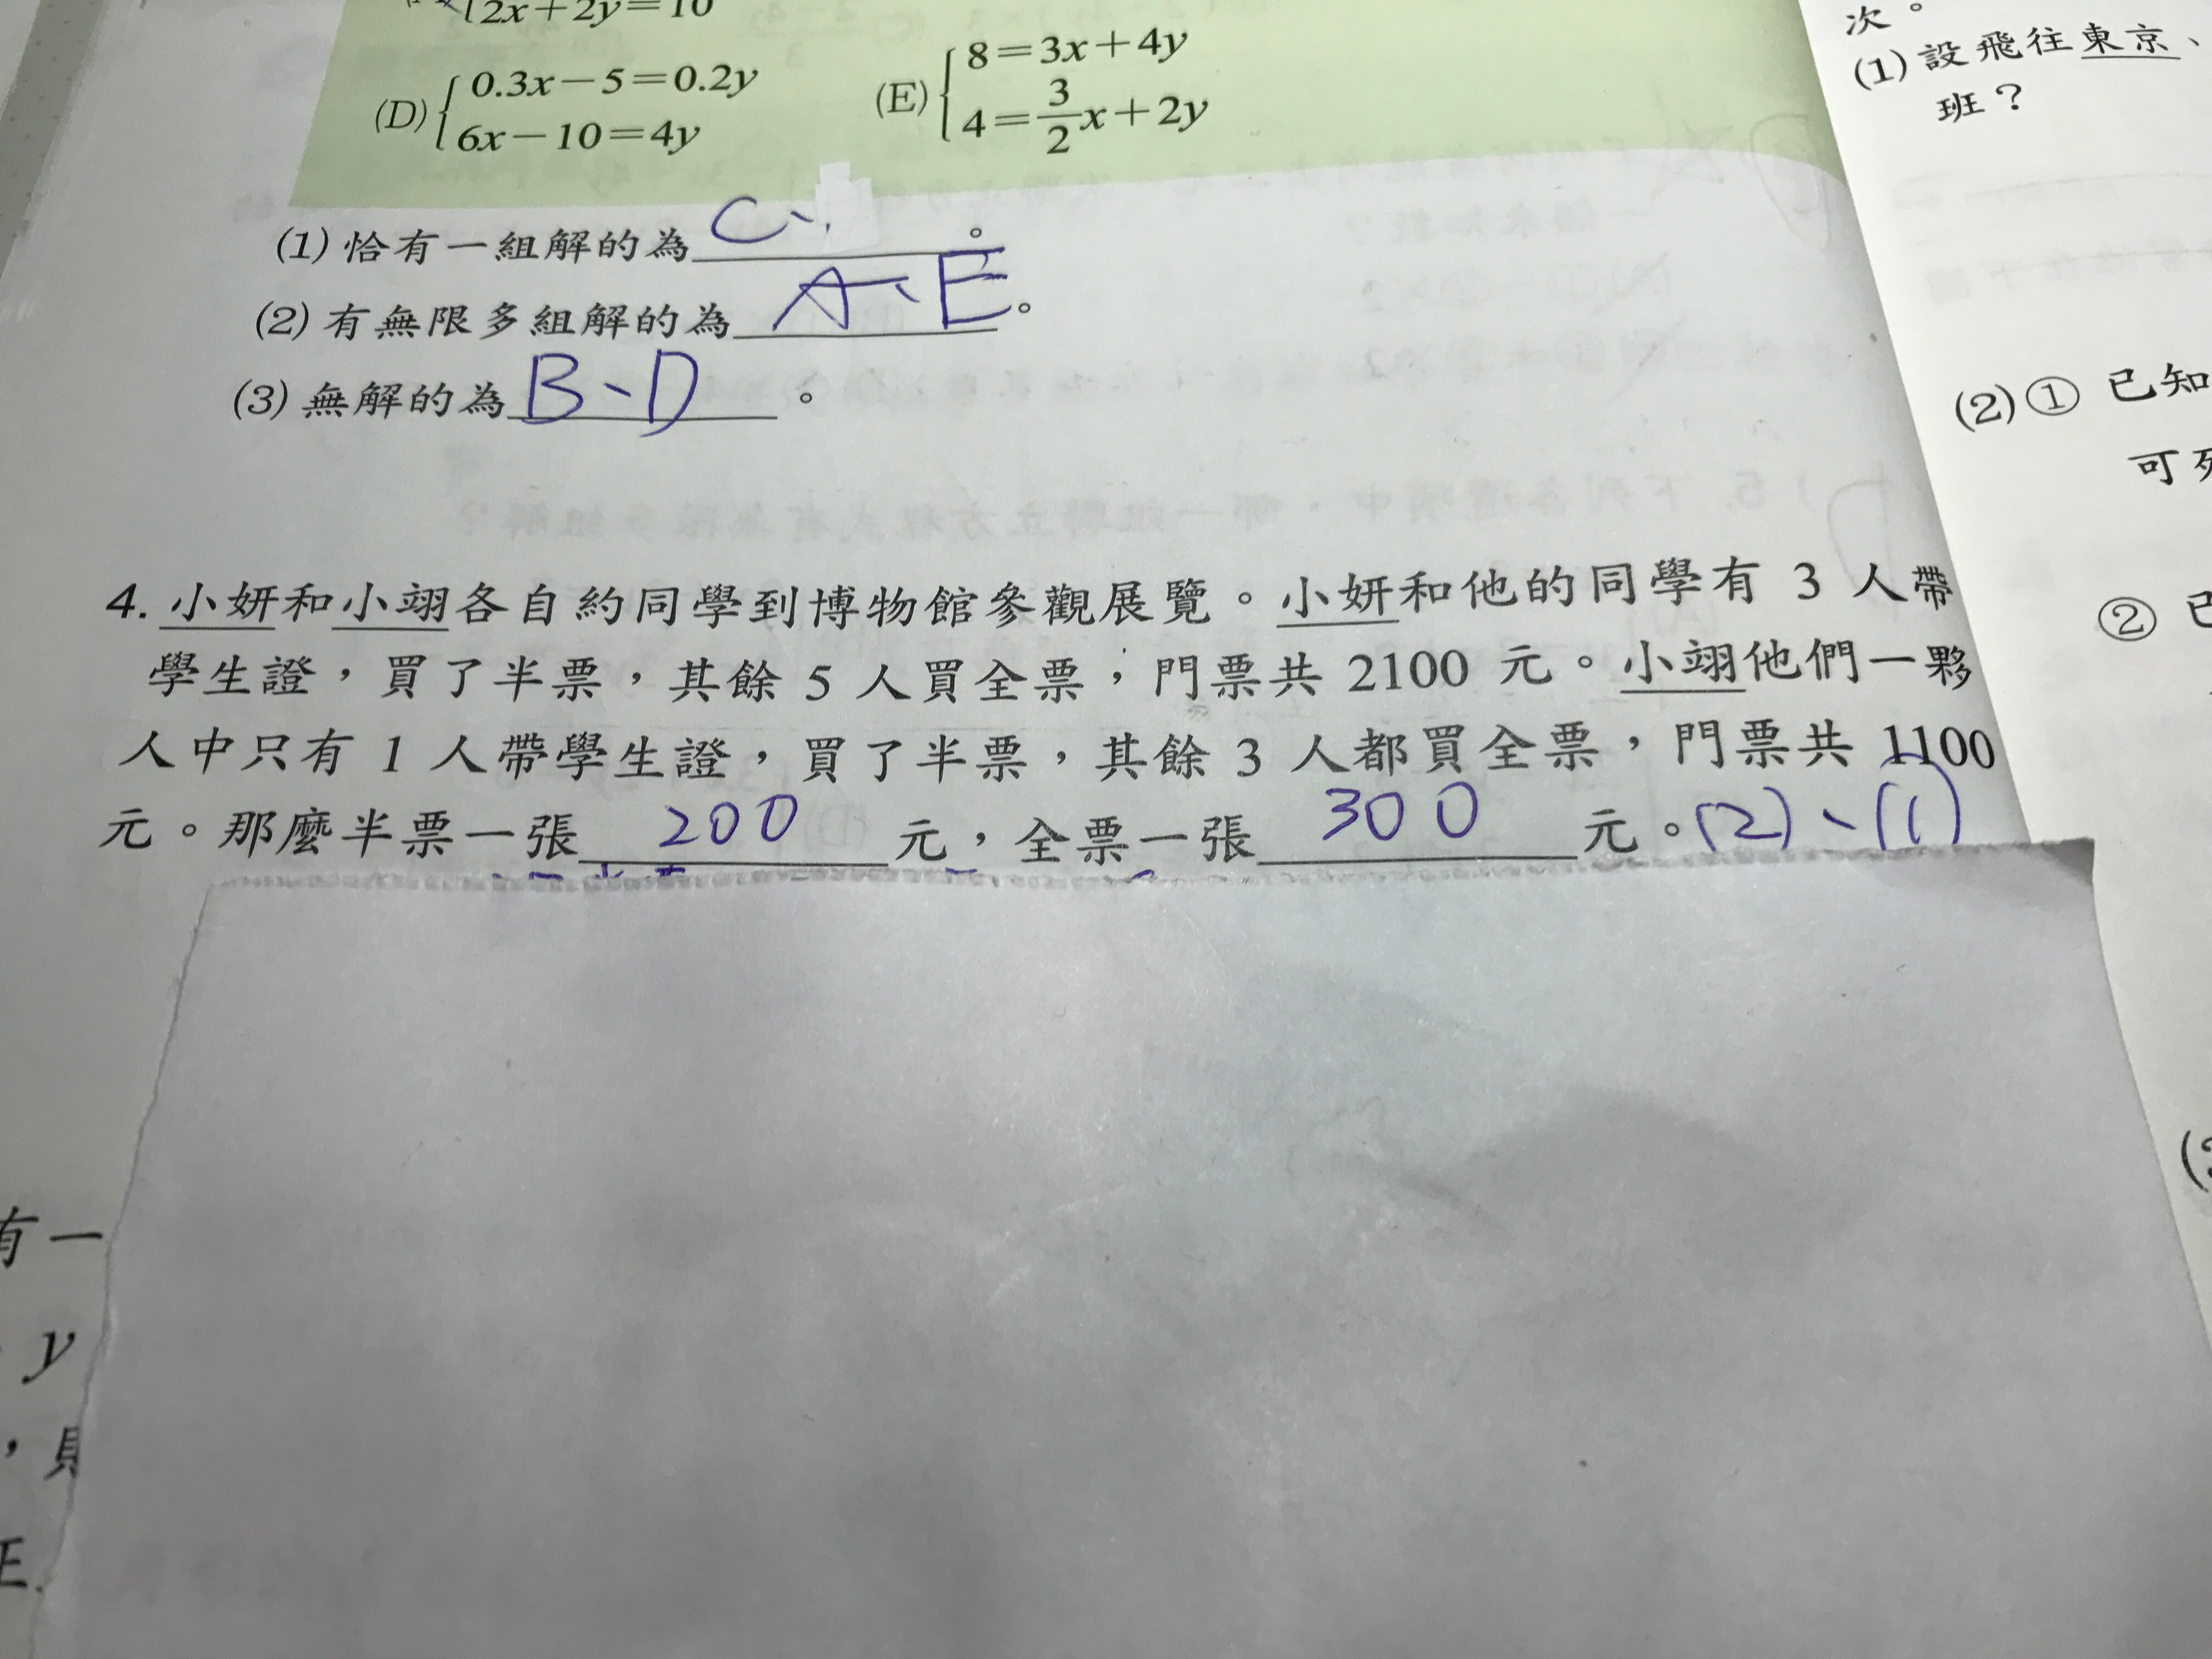 2x+2y=10
(D) { 0.3x-5=0.2y
6x-10=4y
(E) { 8=3x+4y
4=3/2x+2y
(1) 恰有一組解的為 C、 。
(2) 有無限多組解的為 A、E 。
(3) 無解的為 B、D 。
4. 小妍和小翊各自約同學到博物館參觀展覽。小妍和他的同學有 3 人帶
學生證，買了半票，其餘 5 人買全票，門票共 2100 元。小翊他們一夥
人中只有 1 人帶學生證，買了半票，其餘 3 人都買全票，門票共 1100
元。那麼半票一張 200 元，全票一張 300 元。(2)、(1)
有一
y
，則
次。
(1) 設飛往東京、
班？
(2) ① 已知
可列
② 已